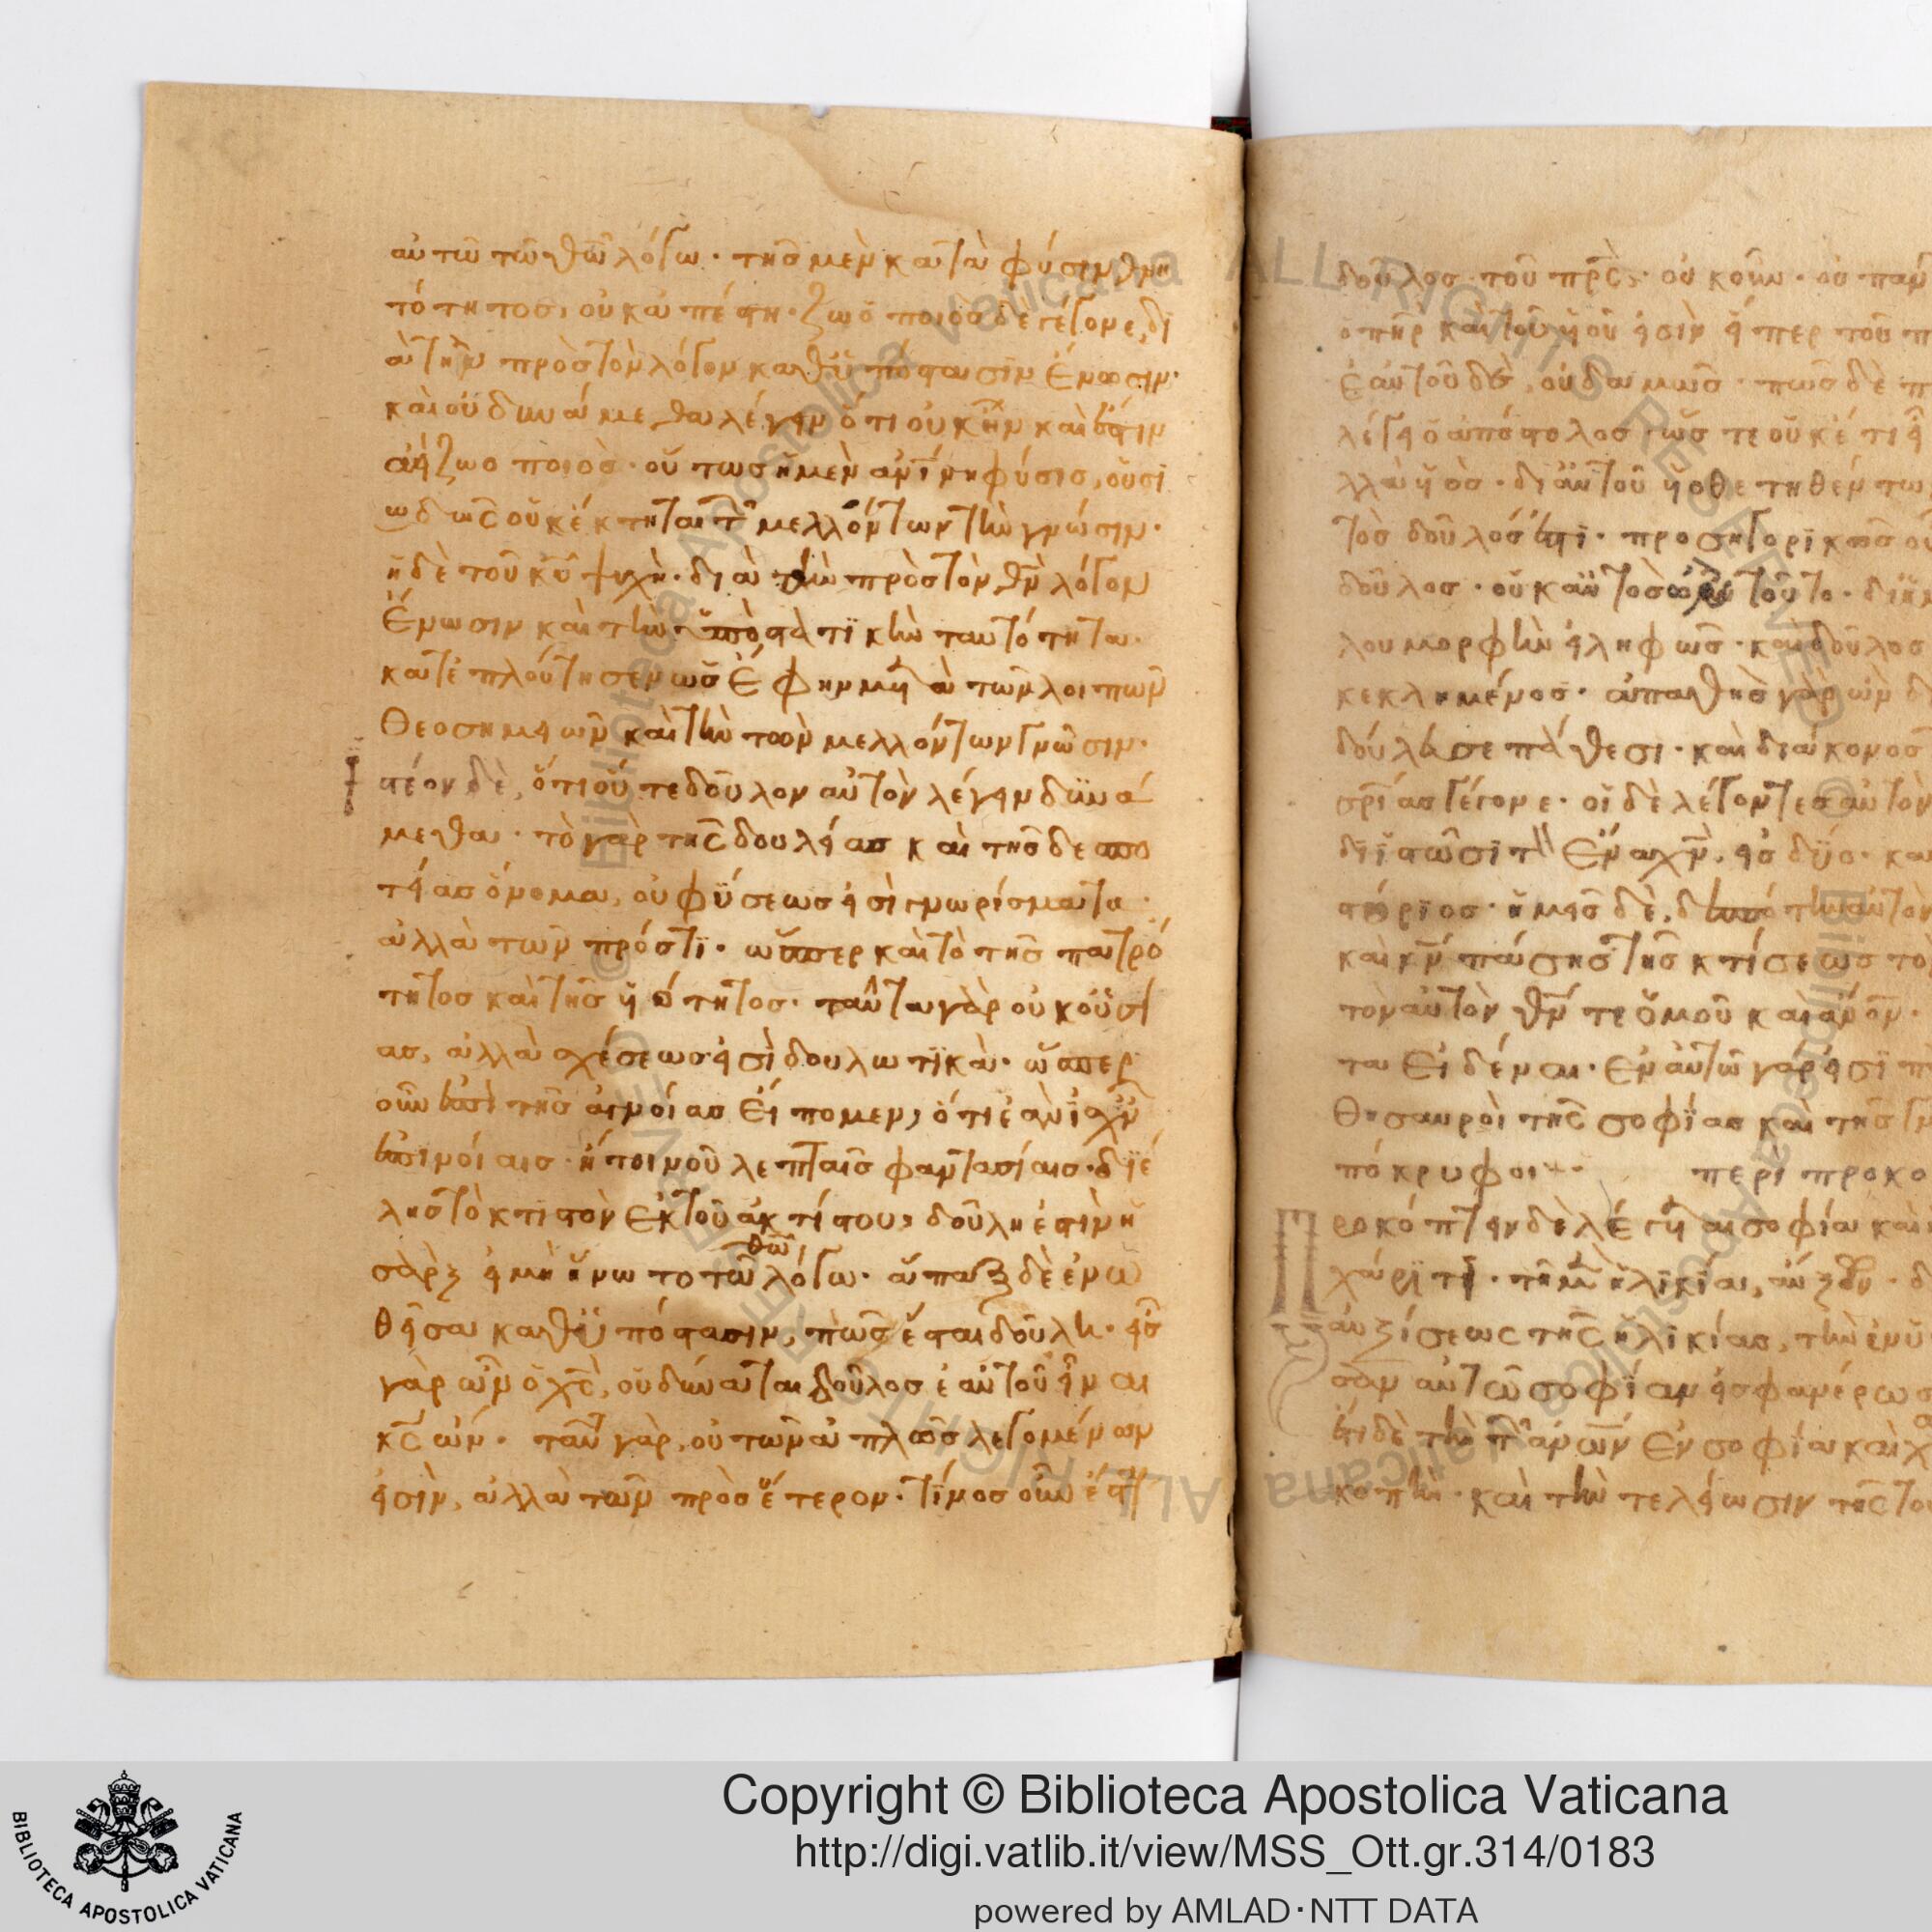 αὐτῶ τῶ θῶ λόγω· τῆς μὲν κατὰ φύσιν θνη
τότητος, οὐκ ἀπέστη· ζωοποιὸς δὲ γέγονε, δϊ
ὰ τὴν πρὸς τὸν λόγον καθϋπόστασϊν ἕνωσιν·
καὶ οὐ δυνάμεθα λέγειν ὅτι οὐκ ἦν καὶ ἐστιν
ἀεὶ ζωοποιὸς· οὕτως ἡ μὲν ἀνίνη φύσις, οὐσϊ
ωδῶς οὐ κέκτηται τ μελλόντων τὴν γνῶσιν·
ἡ δὲ τοῦ κῦ ψυχὴ· διὰ τὴν πρὸς τὸν θν λόγον
ἕνωσιν καὶ τὴν ὑποστατϊκὴν ταυτότητα·
κατεπλούτησεν ὡς ἔφην μετὰ τῶν λοιπῶν
θεοσημειῶν καὶ τὴν τῶν μελλόντων γνῶσιν·
στέον δὲ, ὅτι οὔτε δοῦλον αὐτὸν λέγειν δυνά
μεθα· τὸ γὰρ τῆς δουλείας καὶ τῆς δεσπο
τείας ὄνομα, οὐ φύσεως εἰσὶ γνωρίσματα·
ἀλλὰ τῶν πρός τϊ· ὥσπερ καὶ τὸ τῆς πατρό
τητος καὶ τῆς ὑότητος· ταῦτα γὰρ οὐκ οὐσί
ας, ἀλλὰ σχέσεως εἰσὶ δουλωτϊκὰ· ὥσπερ
οὖν ἐπὶ τῆς ἀγνοίας εἴπομεν, ὅτι ἐὰν ἰσχν
ἐπινοίαις· ἤτοι νοῦ λεπταῖς φαντασίαις· διέ
λης τὸ κτιστὸν ἐκ τοῦ ἀκτίστου, δούλη ἐστὶν ἡ
θῶ
σὰρξ εἰ μὴ ἥνωτο τῶ λόγω· ἅπαξ δὲ ἑνω
θεῖσα καθϋπόστασιν, πῶς ἔσται δούλη· εἷς
γὰρ ὢν ὁ χς, οὐ δύναται δοῦλος ἑαυτοῦ εἶναι
κς ὤν· ταῦτα γὰρ, οὐ τῶν ἁπλῶς λεγομένων
εἰσὶν, ἀλλὰ τῶν πρὸς ἕτερον· τίνος οὖν ἔστ
δοῦλος· τοῦ πρς· οὐκοῦν· οὐ πάν
ὁ πηρ καὶ τοῦ ὑοῦ εἰσὶν εἴπερ τοῦ π
ἑαυτοῦ δὲ, οὐδαμῶς· πῶς δὲ π
λέγει ὁ ἀπόστολος· ὥστε οὐκέτι εἶ
λλὰ ὑός· δι αὐτοῦ ὑοθετηθέντω
τὸς δοῦλός ἐστϊ· προσηγορϊκῶς οὖ
δοῦλος· οὐκ αὐτὸς ὢν τοῦτο· δι ἡμ
λου μορφὴν εἰληφὼς· καὶ δοῦλος
κεκλημένος· ἀπαθὴς γὰρ ὢν δ
δούλευσε πάθεσι· καὶ διάκονος
σρίας γέγονε· οἱ δὲ λέγοντες αὐτὸν
διϊστῶσϊ τ ἕνα χν, εἰς δύο· κα
στόριος· ἡμεῖς δὲ, δεσπότην αὐτὸν
καὶ κν πάσης τῆς κτίσεως τὸ
τὸν αὐτὸν θν τε ὁμοῦ καὶ ἄνον·
τα εἰδέναι· ἐν αὐτῶ γάρ εἰσϊ π
θησαυροὶ τῆς σοφίας καὶ τῆς γν
πόκρυφοι· περὶ προκο
Προκόπτειν δὲ λέγεται σοφία καὶ
χάρϊτϊ· τῆ μὲν ἡλϊκίαι, αὔξων· δ
αὐξήσεως τῆς ἡλϊκίας, τὴν ἐνϋ
σαν αὐτῶ σοφίαν εἰς φανέρωσ
ἔτι δὲ τὴν τ ἀνων ἐν σοφία καὶ χ
κοπὴν· καὶ τὴν τελείωσιν τῆς το
Copyright © Biblioteca Apostolica Vaticana
http://digi.vatlib.it/view/MSS_Ott.gr.314/0183
powered by AMLAD·NTT DATA
BIBLIOTECA APOSTOLICA VATICANA